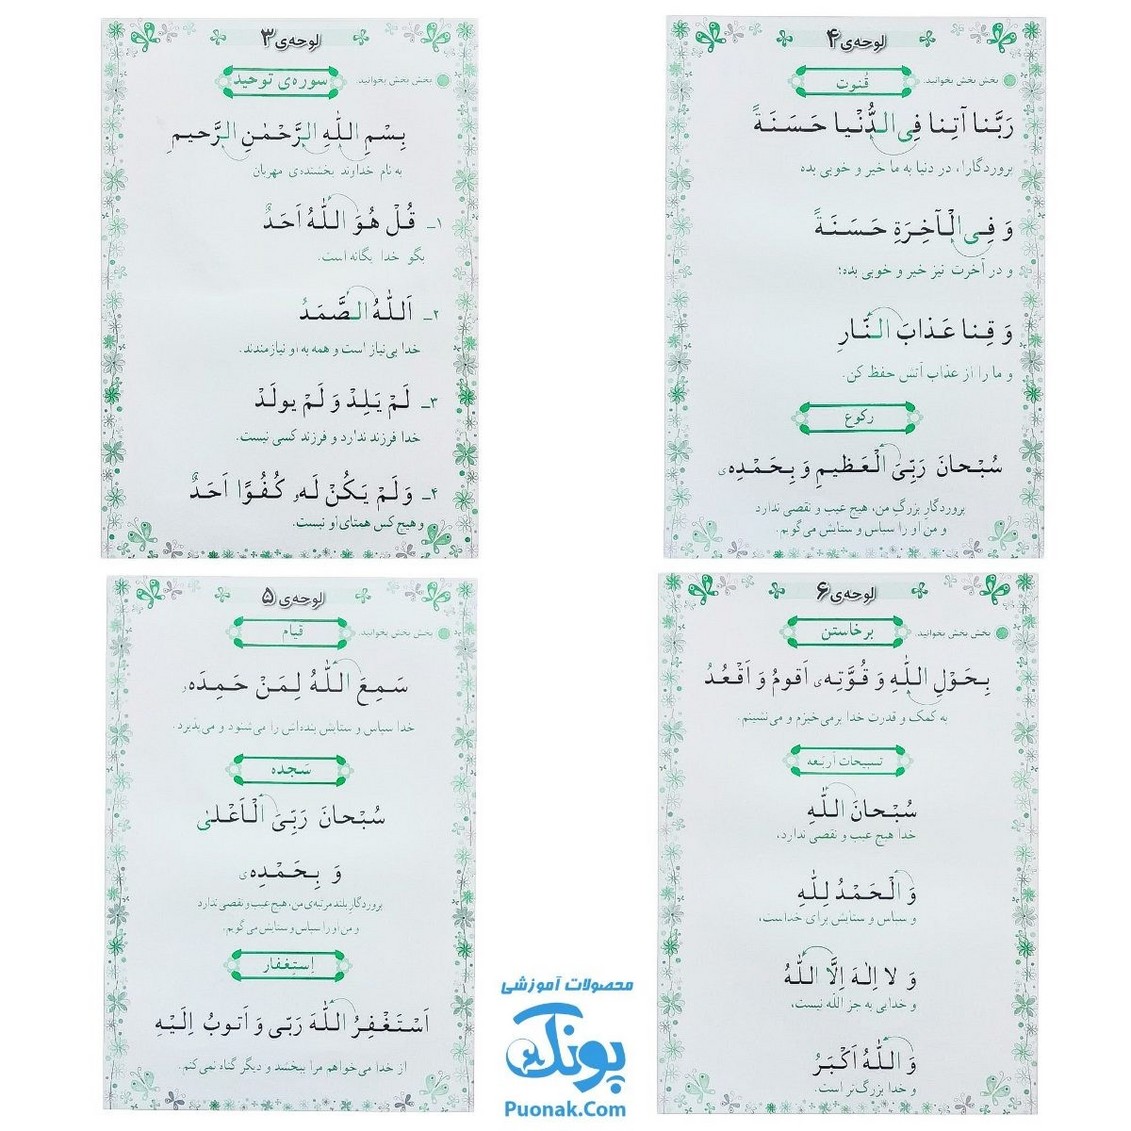 لوحه‌ی ۳
بخش بخش بخوانید.
سوره‌ی توحید
بِسْمِ اللّٰهِ الرَّحْمٰنِ الرَّحیمِ
به نام خداوند بخشنده‌ی مهربان
۱ـ قُلْ هُوَ اللّٰهُ اَحَدٌ
بگو خدا یگانه است.
۲ـ اَللّٰهُ الصَّمَدُ
خدا بی‌نیاز است و همه به او نیازمندند.
۳ـ لَمْ یَلِدْ وَ لَمْ یولَدْ
خدا فرزند ندارد و فرزند کسی نیست.
۴ـ وَ لَمْ یَکُنْ لَهو کُفُوًا اَحَدٌ
و هیچ کس همتای او نیست.
لوحه‌ی ۴
بخش بخش بخوانید.
قُنوت
رَبَّنا آتِنا فِی الدُّنْیا حَسَنَةً
پروردگارا، در دنیا به ما خیر و خوبی بده
وَ فِی الْآخِرَةِ حَسَنَةً
و در آخرت نیز خیر و خوبی بده؛
وَ قِنا عَذابَ النّارِ
و ما را از عذاب آتش حفظ کن.
رکوع
سُبْحانَ رَبِّیَ الْعَظیمِ وَ بِحَمْدِهی
پروردگارِ بزرگِ من، هیچ عیب و نقصی ندارد
و من او را سپاس و ستایش می‌گویم.
لوحه‌ی ۵
بخش بخش بخوانید.
قیام
سَمِعَ اللّٰهُ لِمَنْ حَمِدَهو
خدا سپاس و ستایش بنده‌اش را می‌شنود و می‌پذیرد.
سَجده
سُبْحانَ رَبِّیَ الْاَعْلیٰ
وَ بِحَمْدِهی
پروردگارِ بلند مرتبه‌ی من، هیچ عیب و نقصی ندارد
و من او را سپاس و ستایش می‌گویم.
اِستِغفار
اَسْتَغْفِرُ اللّٰهَ رَبّی وَ اَتوبُ اِلَیْهِ
از خدا می‌خواهم مرا ببخشد و دیگر گناه نمی‌کنم.
لوحه‌ی ۶
بخش بخش بخوانید.
برخاستن
بِحَوْلِ اللّٰهِ وَ قُوَّتِهی اَقومُ وَ اَقْعُدُ
به کمک و قدرت خدا برمی‌خیزم و می‌نشینم.
تسبیحات اَربَعه
سُبْحانَ اللّٰهِ
خدا هیچ عیب و نقصی ندارد،
وَ الْحَمْدُ لِلّٰهِ
و سپاس و ستایش برای خداست،
وَ لا اِلٰهَ اِلَّا اللّٰهُ
و خدایی به جز الله نیست،
وَ اللّٰهُ اَکْبَرُ
و خدا بزرگ‌تر است.
محصولات آموزشی
پونک
Puonak.Com